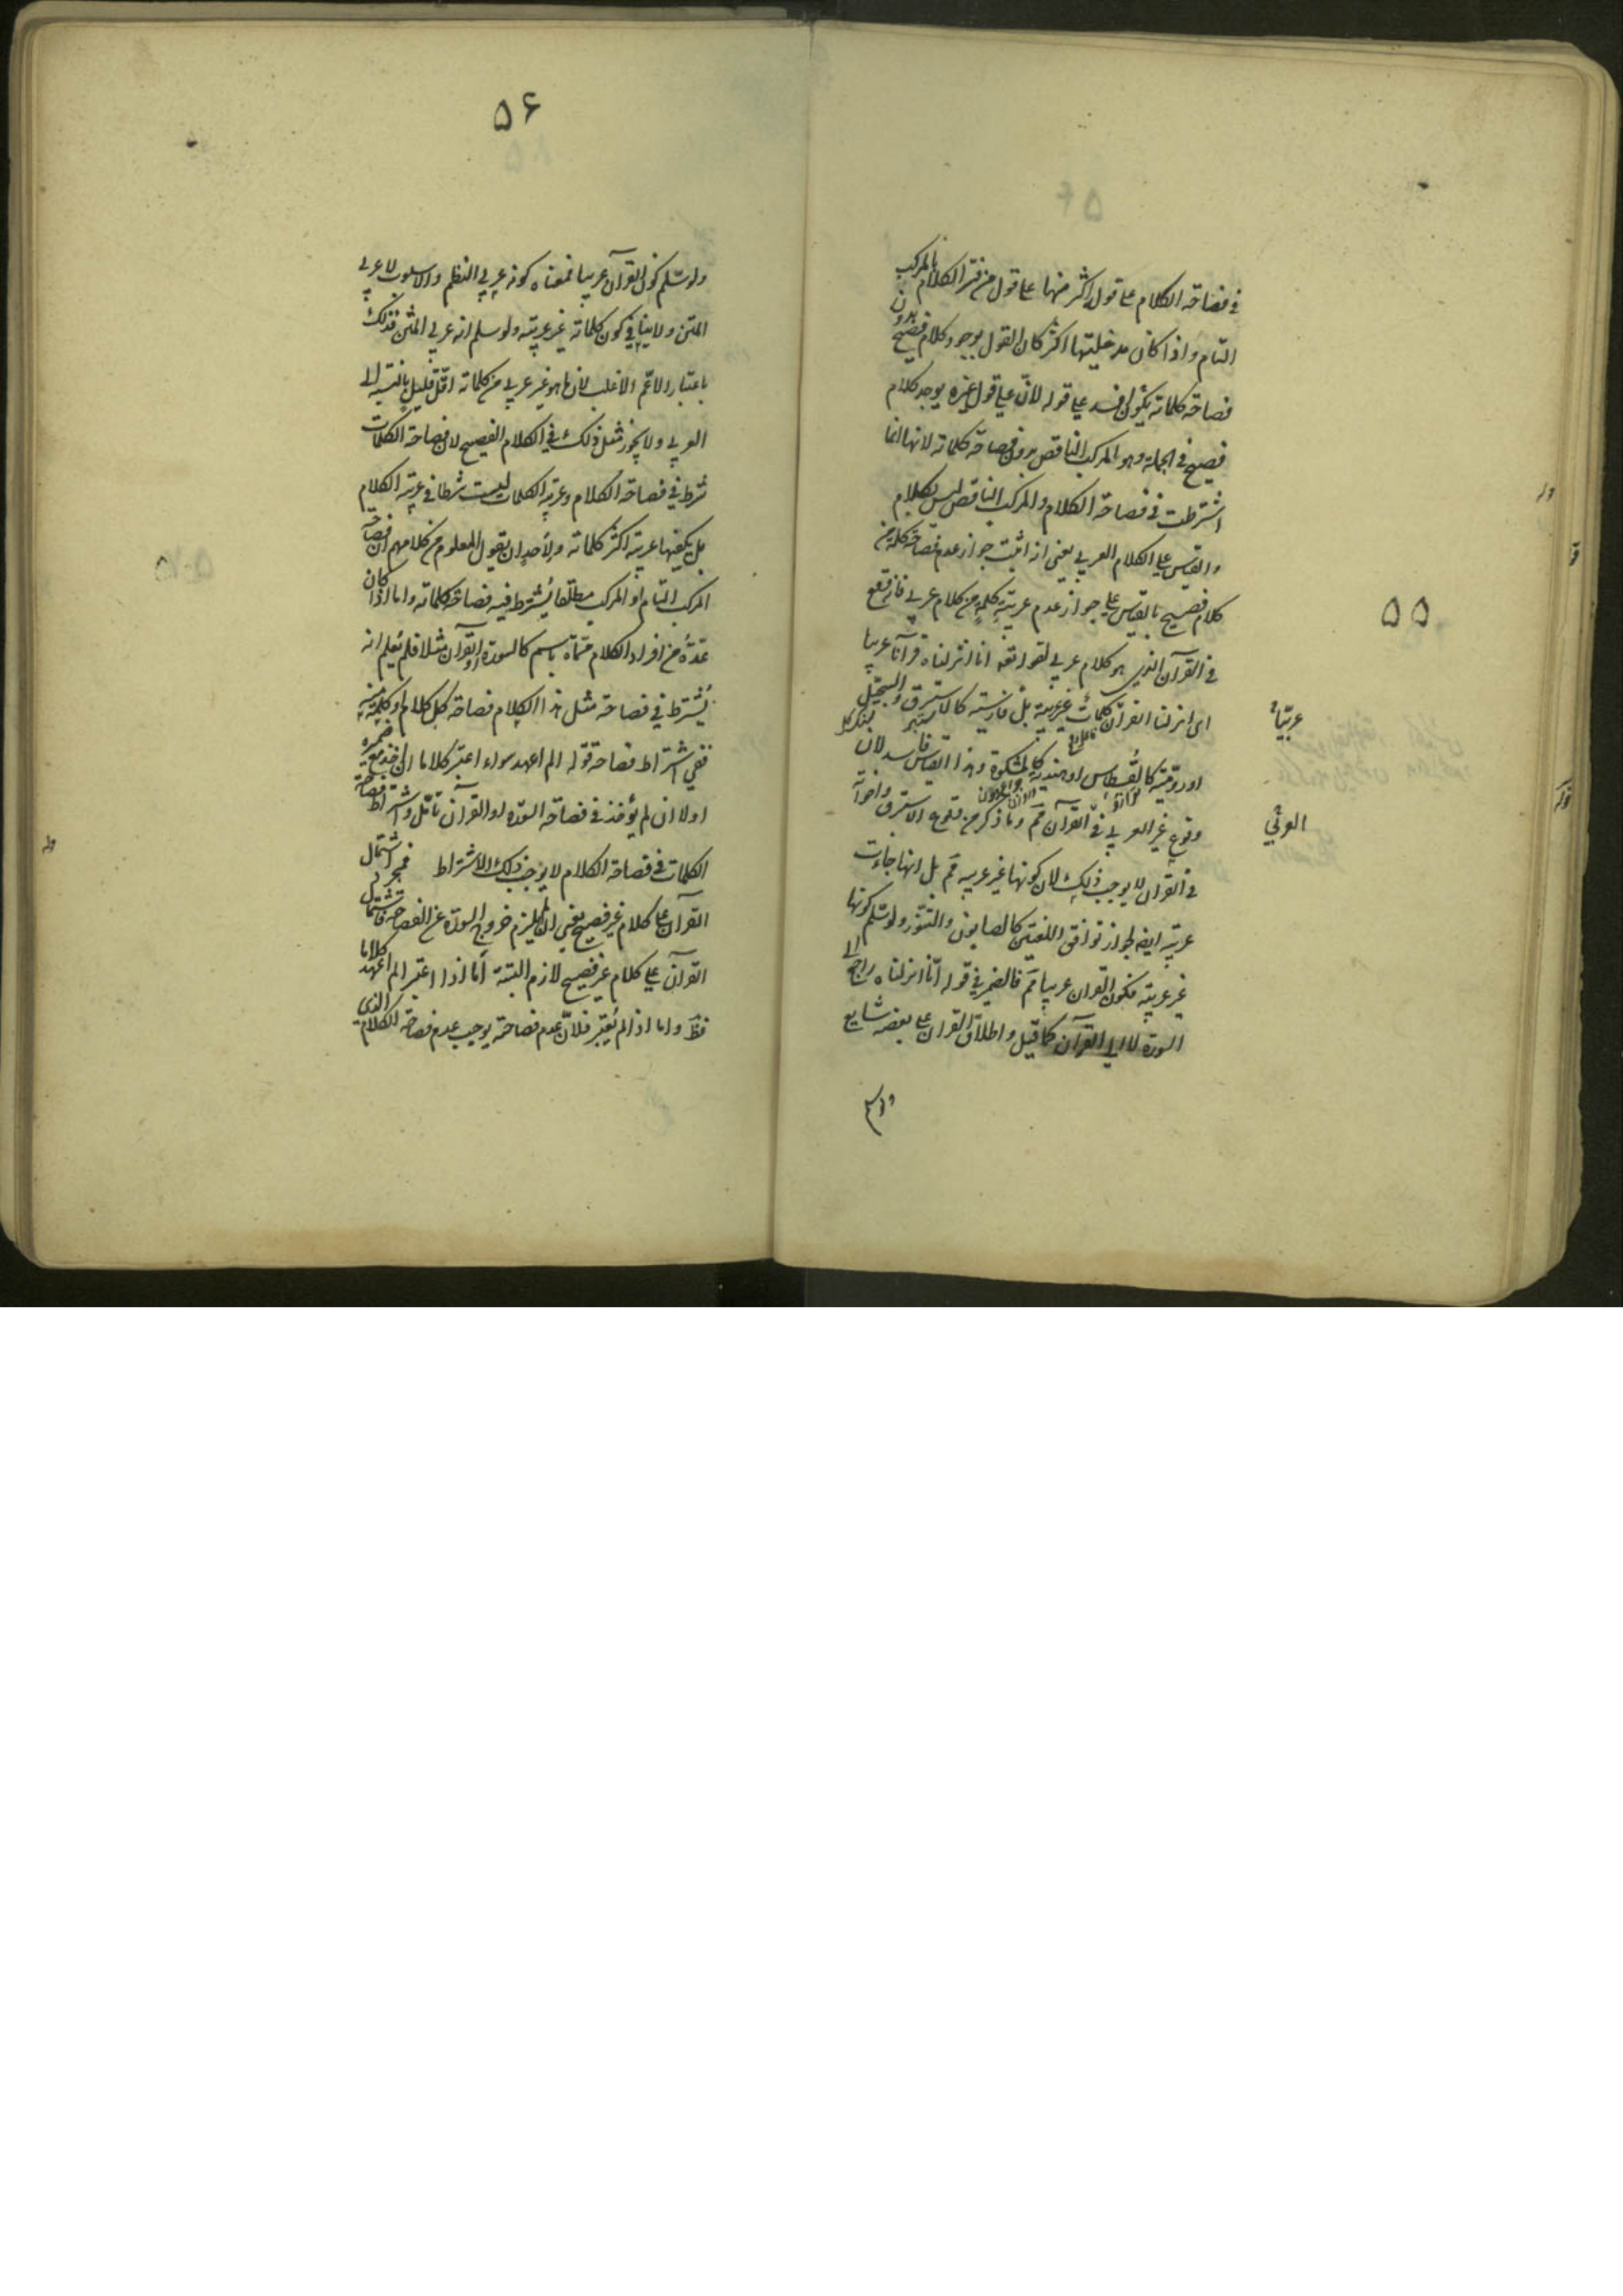 ۵۵
في فصاحة الكلام على قوله اكثر منها على قول من فسر الكلام بالمركب
التام واذا كان مدخليتها اكثر كان القول بوجود كلام فصيح بدون
فصاحة كلماته يكون افسد على قوله لأن على قول غيره يوجد كلام
فصيح في الجملة وهو المركب الناقص بدون فصاحة كلماته لانها انما
اشترطت في فصاحة الكلام والمركب الناقص ليس بكلام
والقياس على الكلام العربي يعني انه اثبت جواز عدم فصاحة كلمة من
كلام فصيح بالقياس على جواز عدم عربية كلمة من كلام عربي فانه وقع
في القرآن الذي هو كلام عربي لقوله تعه انا انزلناه قرآنا عربيا
اى انزلنا القرآن كلمات غير عربية بل فارسية كالاستبرق والسجيل
عربيّاً
اورومية كالقسطاس او هندية كالمشكوة وهذا القياس فاسد لان
وقوع غير العربي في القرآن مم وما ذكر من وقوع الاستبرق واخواته
العربي
في القرآن لا يوجب ذلك لان كونها غير عربية مم بل انها جاءت
عربية ايضا لجواز توافق اللغتين كالصابون والتنور ولو سلم كونها
غير عربية فكون القران عربيا مم فالضمير في قوله انا انزلناه راجع الى
السورة لا الى القرآن كما قيل واطلاق القران على بعضه شايع
۵۶
ولو سلم كون القرآن عربيا فمعناه كونه عربي النظم والاسلوب لا عربي
المتن ولا ينافي كون كلماته غير عربية ولو سلم انه عربي المتن فذلك
باعتبار الاعم الاغلب لان ما هو غير عربي من كلماته اقل قليل بالنسبة الى
العربي ولا يجوز مثل ذلك في الكلام الفصيح لان فصاحة الكلمات
شرط في فصاحة الكلام وعربية الكلمات ليست شرطا في عربية الكلام
بل يكفيها عربية اكثر كلماته ولأحد ان يقول المعلوم من كلامهم ان فصاحة
المركب التام او المركب مطلقا يشترط فيه فصاحة كلماته واما اذا كان
عدة من افراد الكلام مسماة باسم كالسورة او القرآن مثلا فلم يعلم انه
يشترط في فصاحة مثل هذا الكلام فصاحة كل كلام او كلمة منه
ففي اشتراط فصاحة قوله الم اعهد سواء اعتبر كلاما ان اخذ مع ضميره
اولا ان لم يؤخذ في فصاحة السورة او القرآن تأمل واشتراط فصاحة
الكلمات في فصاحة الكلام لا يوجب ذلك الاشتراط فمجرد اشتمال
القرآن على كلام غير فصيح يعني ان لم يلزم خروج السورة عن الفصاحة فاشتمال
القرآن على كلام غير فصيح لازم البتة أما اذا اعتبر الم اعهد كلاما
فظ واما اذا لم يعتبر فلان عدم فصاحته يوجب عدم فصاحة الكلام الذي